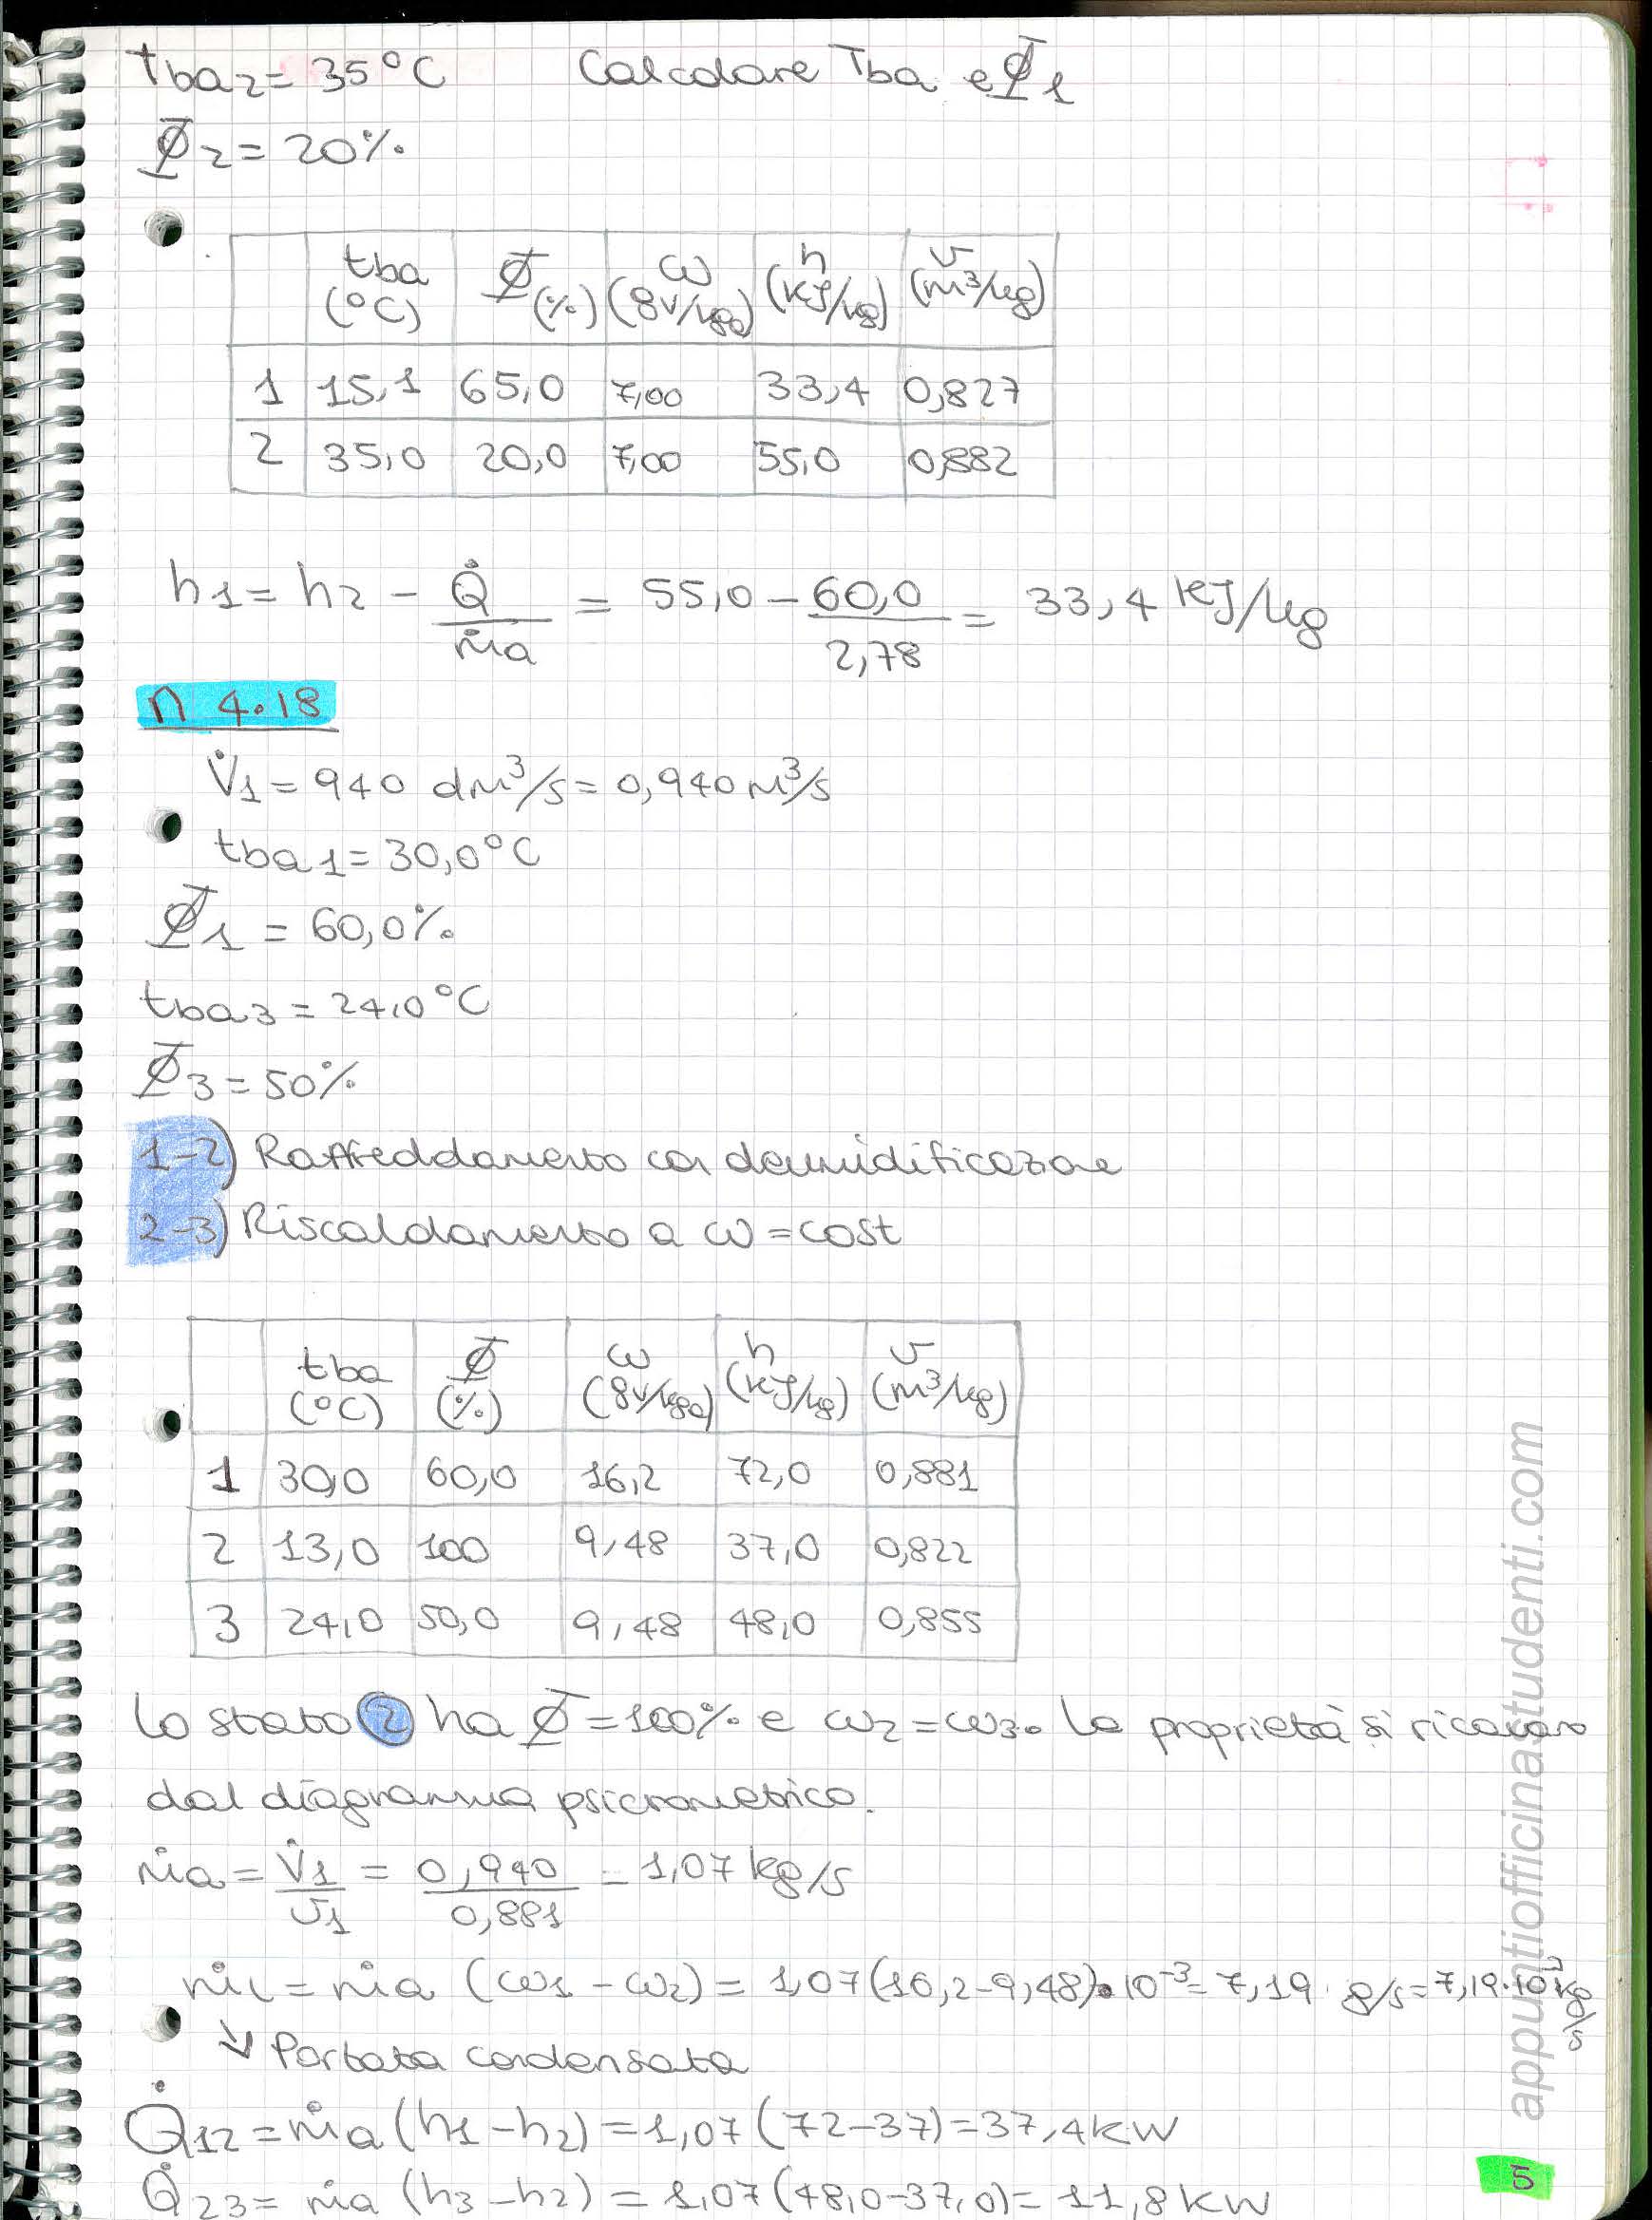 tba2 = 35°C Calcolare Tba e Φ1
Φ2 = 20%
tba (°C) Φ (%) ω (gv/kga) h (kJ/kg) v (m³/kg)
1 15,1 65,0 7,00 33,4 0,827
2 35,0 20,0 7,00 55,0 0,882
h1 = h2 - Q̇/ṁa = 55,0 - 60,0/2,78 = 33,4 kJ/kg
n 4.18
V̇1 = 940 dm³/s = 0,940 m³/s
tba1 = 30,0°C
Φ1 = 60,0%
tba3 = 24,0°C
Φ3 = 50%
1-2) Raffreddamento con deumidificazione
2-3) Riscaldamento a ω = cost
tba (°C) Φ (%) ω (gv/kga) h (kJ/kg) v (m³/kg)
1 30,0 60,0 16,2 72,0 0,881
2 13,0 100 9,48 37,0 0,822
3 24,0 50,0 9,48 48,0 0,855
Lo stato 2 ha Φ = 100% e ω2 = ω3. Le proprietà si ricavano
dal diagramma psicrometrico.
ṁa = V̇1/v1 = 0,940/0,881 = 1,07 kg/s
ṁL = ṁa (ω1 - ω2) = 1,07 (16,2 - 9,48) · 10⁻³ = 7,19 g/s = 7,19·10⁻³ kg/s
↘ Portata condensata
Q̇12 = ṁa (h1 - h2) = 1,07 (72 - 37) = 37,4 kW
Q̇23 = ṁa (h3 - h2) = 1,07 (48,0 - 37,0) = 11,8 kW
5
appuntiofficinastudenti.com